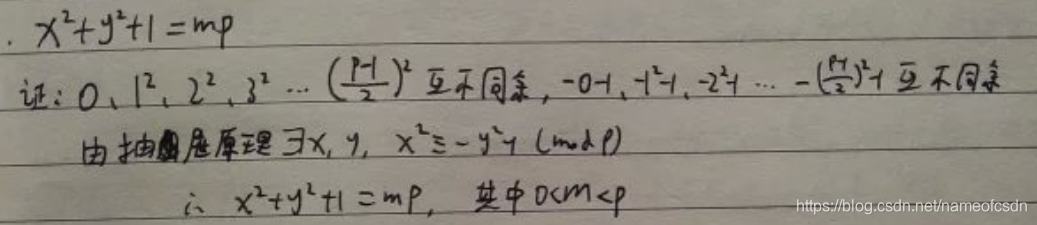 . x²+y²+1=mp
证: 0、1²、2²、3² … (\frac{p-1}{2})² 互不同余, -0-1、-1²-1、-2²-1 … -(\frac{p-1}{2})²-1 互不同余
由抽屉原理 ∃x, y, x²≡-y²-1 (mod p)
∴ x²+y²+1=mp, 其中 0<m<p
https://blog.csdn.net/nameofcsdn